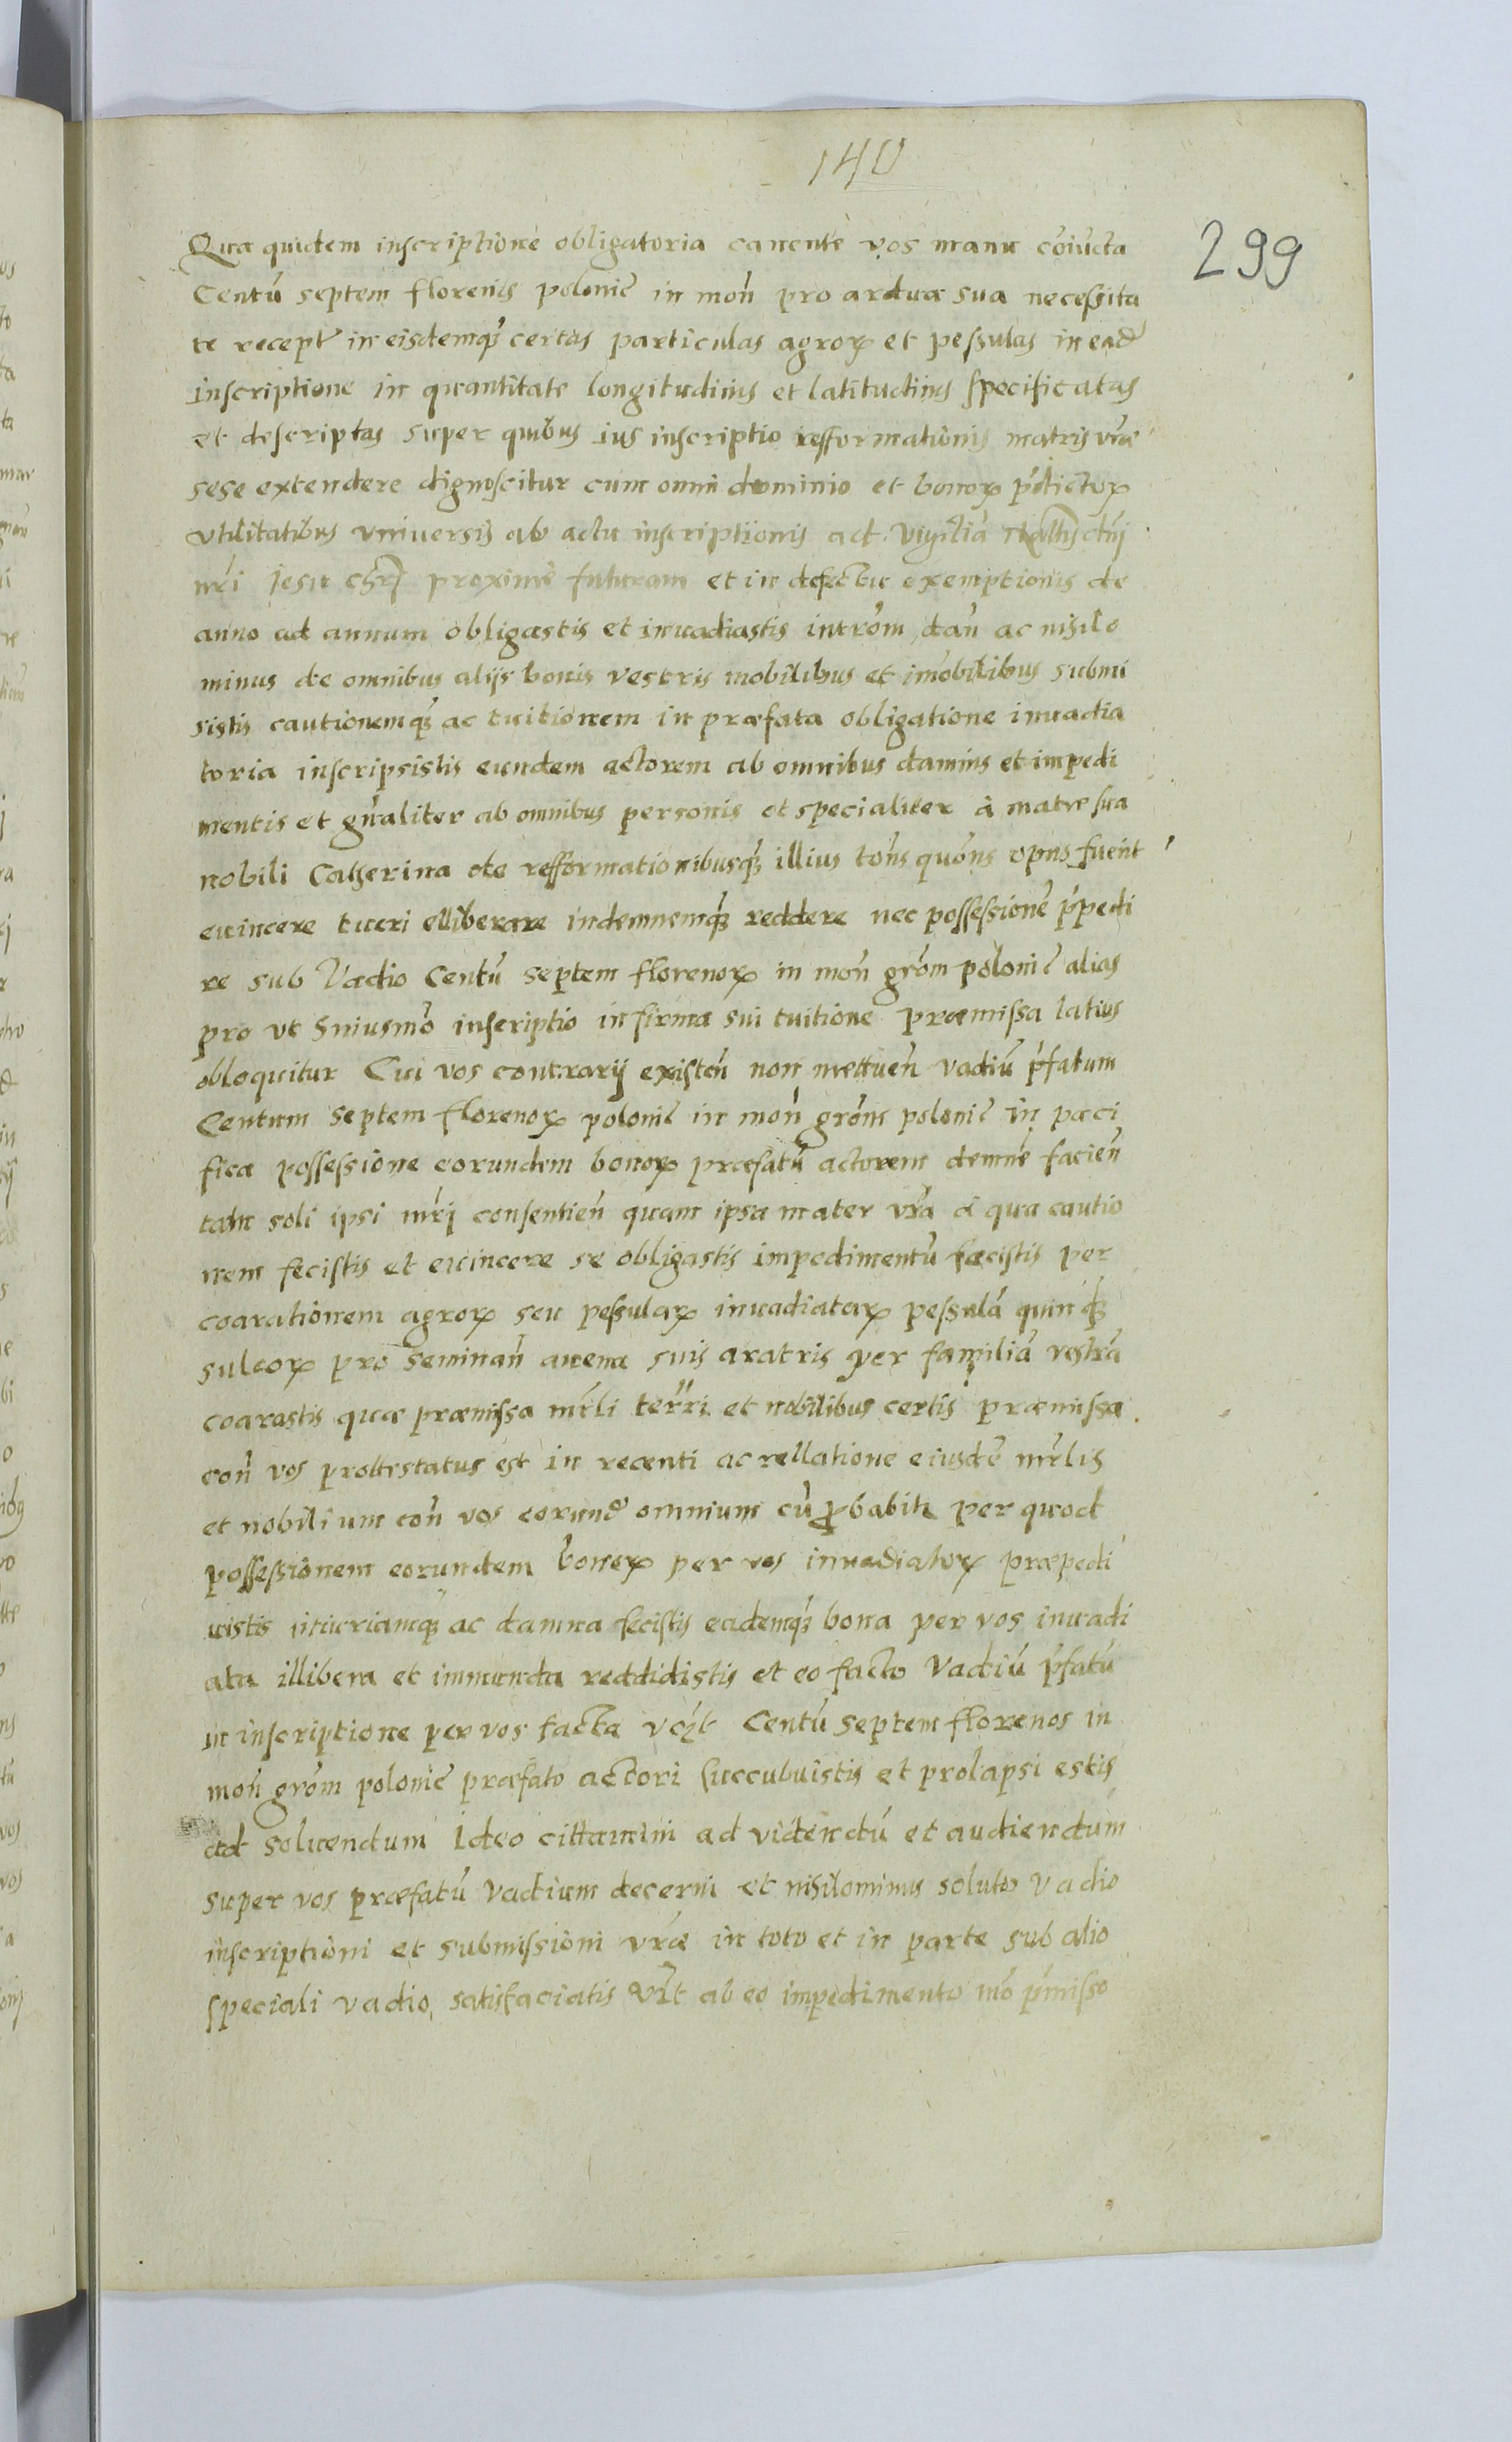 140
299
Qua quidem inscriptione obligatoria canente vos manu cōiūcta
Centū septem florenis poloni͡e in moñ pro ardua sua necessita
te recept̃ in eisdemq̃ certas particulas agroꝝ et pessulas in ead̃
inscriptione in quantitate longitudinis et latitudinis specificatas
et descriptas super quibus ius inscriptio refformationis matris vr̃ae
sese extendere dignoscitur cum omni dominio et bonoꝝ p̃dictoꝝ
vtilitatibus vniuersis ab actu inscriptionis ad Vigiliā dñi
nr̃i Jesu chrī proxime futuram et in defectu exemptionis de
anno ad annum obligastis et inuadiastis intrōm dañ ac nihilo
minus de omnibus alijs bonis vestris mobilibus et im̄obilibus submi
sistis cautionemq̃ ac tuitionem in præfata obligatione inuadia
toria inscripsistis eundem actorem ab omnibus damnis et impedi
mentis et gñaliter ab omnibus personis et specialiter à matre sua
nobili Catherina ote refformationibusq̃ illius tõns quõns opus fuerit
euincere tueri elliberare indemnemq̃ reddere nec possessionē p̃pedi
re sub Vadio Centū septem florenoꝝ in moñ grōm poloni͡e alias
pro vt huiusmō inscriptio in firma sui tuitione præmissa latius
obloquitur Cui vos contrarij existeñ non mettueñ vadiū p̃fatum
Centum septem florenoꝝ poloni͡e in moñ grōm poloni͡e in paci
fica possessione eorundem bonoꝝ præfatū actorem demnē facieñ
tam soli ipsi mr̃j consentieñ quam ipsa mater vr̃a à qua cautio
nem fecistis et euincere se obligastis impedimentū fecistis per
coarationem agroꝝ seu pessulaꝝ inuadiataꝝ pessulā quinq̃
sulcoꝝ pro seminañ auena suis aratris per familiā vestrā
coarastis quæ præmissa mr̃li terr̃ri et nobilibus certis præmissa
coñ vos prottestatus est in recenti ac rellatione eiusdē mr̃lis
et nobilium coñ vos eorund̃ omnium cū ꝓbabit per quod
possessionem eorundem bonoꝝ per vos inuadiatoꝝ præpedi
uistis iniuriamq̃ ac damna fecistis eademq̃ bona per vos inuadi
ata illibera et immunda reddidistis et eo facto Vadiū p̃fatū
in inscriptione per vos facta vcʒ̃t Centū septem florenos in
moñ grōm poloni͡e præfato actori succubuistis et prolapsi estis
ad soluendum Ideo cittamini ad videndū et audiendum
super vos præfatū Vadium decerni et nihilominus soluto Vadio
inscriptioni et submissioni vr̃æ in toto et in parte sub alio
speciali vadio satisfaciatis Vl̃t ab eo impedimento mō p̃misso